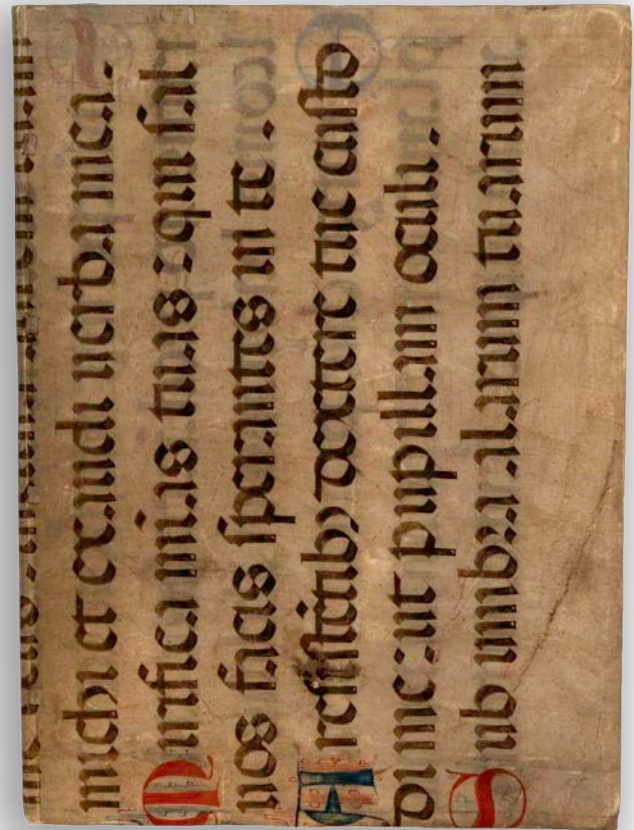 michi et exaudi uerba mea.
Mirifica mīas tuas : qui sal
uos facis sperantes in te .
A resistētibꝫ dextere tue custo
di me : ut pupillam oculi .
Sub umbra alarum tuarum